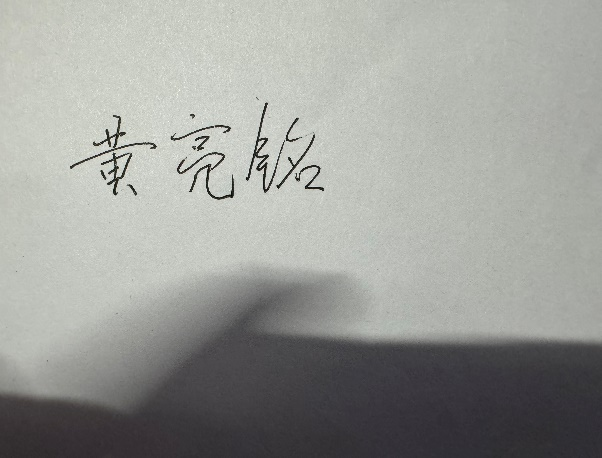 黄亮铭